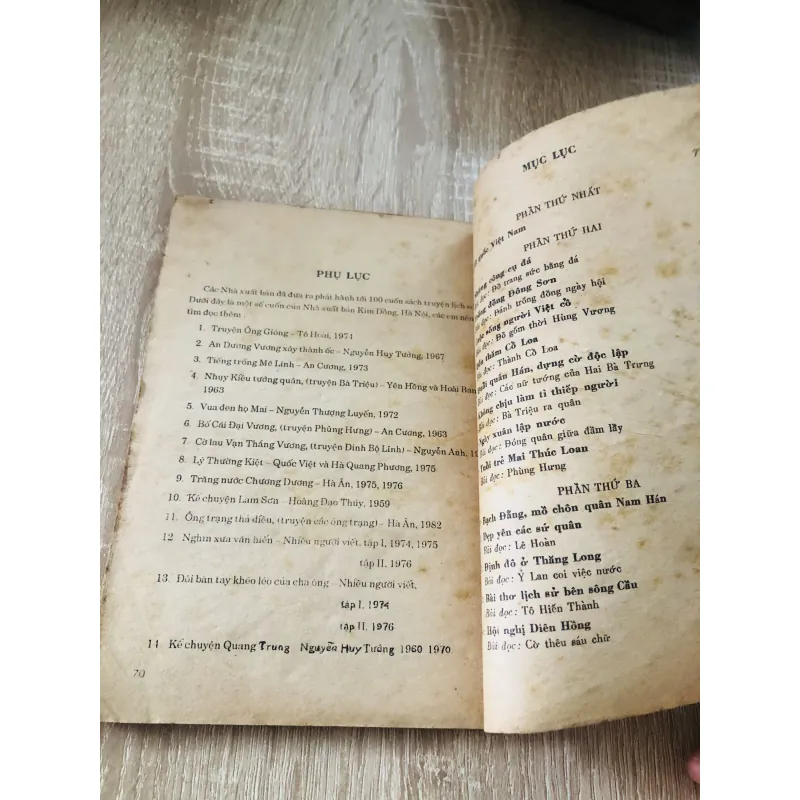 PHỤ LỤC
Các Nhà xuất bản đã đưa ra phát hành tới 100 cuốn sách truyện lịch sử
Dưới đây là một số cuốn của Nhà xuất bản Kim Đồng, Hà Nội, các em nên
tìm đọc thêm
1. Truyện Ông Gióng – Tô Hoài, 1971
2. An Dương Vương xây thành ốc – Nguyễn Huy Tưởng, 1967
3. Tiếng trống Mê Linh – An Cương, 1973
4. Nhụy Kiều tướng quân, (truyện Bà Triệu) – Yên Hồng và Hoài Ban
1963
5. Vua đen họ Mai – Nguyễn Thượng Luyến, 1972
6. Bố Cái Đại Vương, (truyện Phùng Hưng) – An Cương, 1963
7. Cờ lau Vạn Thắng Vương, (truyện Đinh Bộ Lĩnh) – Nguyễn Anh,
8. Lý Thường Kiệt – Quốc Việt và Hà Quang Phương, 1975
9. Trăng nước Chương Dương – Hà Ân, 1975, 1976
10. Kể chuyện Lam Sơn – Hoàng Đạo Thúy, 1959
11. Ông trạng thả diều, (truyện các ông trạng) – Hà Ân, 1982
12 Nghìn xưa văn hiến – Nhiều người viết, tập I, 1974, 1975
tập II, 1976
13. Đôi bàn tay khéo léo của cha ông – Nhiều người viết,
tập I, 1974
tập II, 1976
14 Kể chuyện Quang Trung Nguyễn Huy Tưởng 1960 1970
70
MỤC LỤC
PHẦN THỨ NHẤT
quốc Việt Nam
PHẦN THỨ HAI
công cụ đá
đọc: Đồ trang sức bằng đá
đồng Đông Sơn
đọc: Đánh trống đồng ngày hội
sống người Việt cổ
đọc: Đồ gốm thời Hùng Vương
thăm Cổ Loa
đọc: Thành Cổ Loa
quân Hán, dựng cờ độc lập
đọc: Các nữ tướng của Hai Bà Trưng
Không chịu làm tì thiếp người
Bài đọc: Bà Triệu ra quân
Ngày xuân lập nước
Bài đọc: Đóng quân giữa đầm lầy
Tuổi trẻ Mai Thúc Loan
Bài đọc: Phùng Hưng
PHẦN THỨ BA
Bạch Đằng, mồ chôn quân Nam Hán
Dẹp yên các sứ quân
Bài đọc: Lê Hoàn
Định đô ở Thăng Long
Bài đọc: Ỷ Lan coi việc nước
Bài thơ lịch sử bên sông Cầu
Bài đọc: Tô Hiến Thành
Hội nghị Diên Hồng
Bài đọc: Cờ thêu sáu chữ